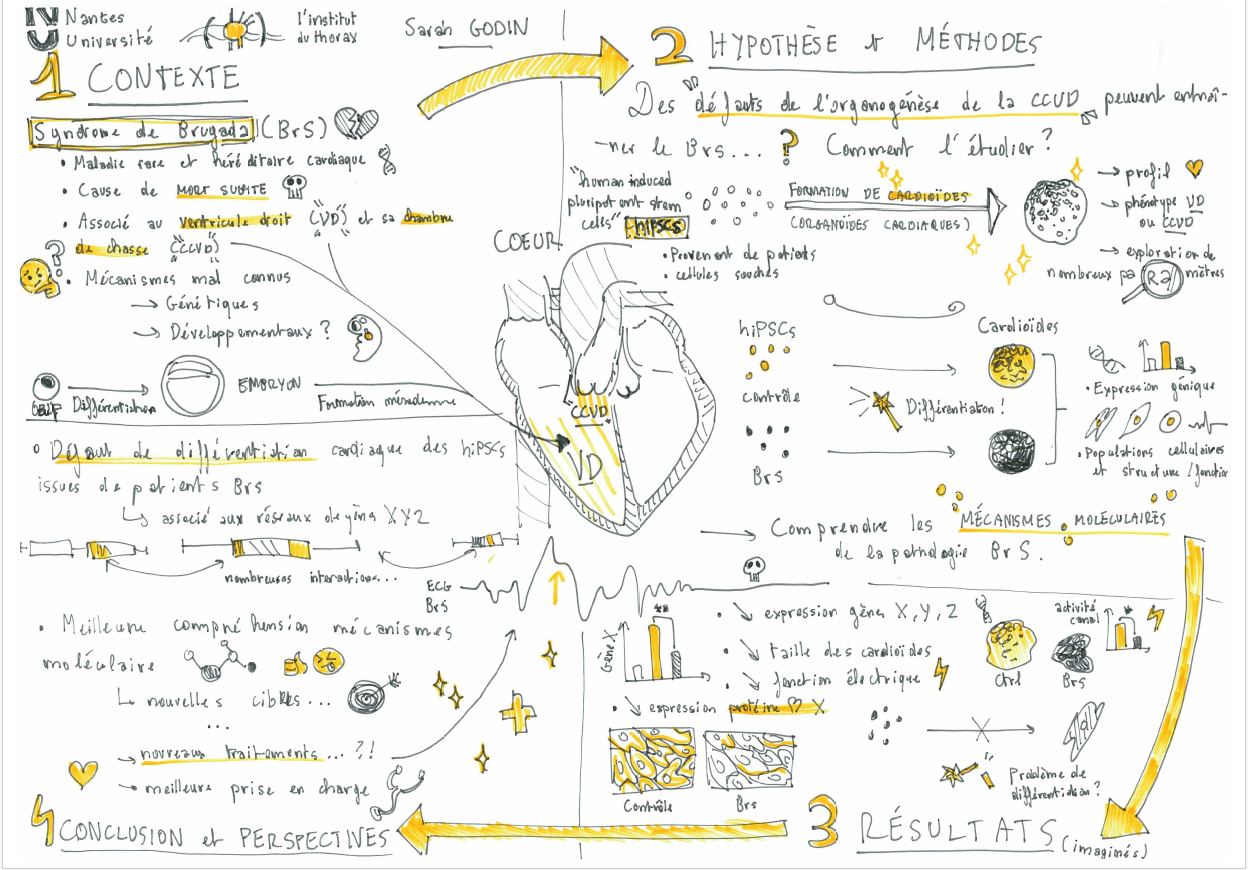 Nantes
Université
l'institut
du thorax
Sarah GODIN
1 CONTEXTE
Syndrome de Brugada (BrS)
• Maladie rare et héréditaire cardiaque
• Cause de MORT SUBITE
• Associé au ventricule droit (VD) et sa chambre
de chasse (CCVD)
?
• Mécanismes mal connus
→ Génétiques
→ Développementaux ?
OEUF
Différentiation
EMBRYON
Formation mésoderme
2 HYPOTHÈSE et MÉTHODES
Des "défauts de l'organogénèse de la CCVD" peuvent entraî-
-ner le BrS... ? Comment l'étudier ?
"human induced
pluripotent stem
cells" hiPSCs
• Provenant de patients
• cellules souches
FORMATION DE CARDIOÏDES
(ORGANOÏDES CARDIAQUES)
→ profil
→ phénotype VD
ou CCVD
→ exploration de
nombreux paramètres
COEUR
CCVD
VD
hiPSCs
contrôle
BrS
Différentiation !
Cardioïdes
• Expression génique
• Populations cellulaires
et structure / fonction
→ Comprendre les MÉCANISMES MOLÉCULAIRES
de la pathologie BrS.
3 RÉSULTATS (imaginés)
Gène X
**
• ↘ expression gènes X, Y, Z
• ↘ taille des cardioïdes
• ↘ fonction électrique
• ↘ expression protéine X
Contrôle
BrS
Ctrl
BrS
activité
canal
**
X
Problème de
différentiation ?
4 CONCLUSION et PERSPECTIVES
○ Défaut de différentiation cardiaque des hiPSCs
issues de patients BrS
↳ associé aux réseaux de gène XYZ
nombreuses interactions...
ECG
BrS
• Meilleure compréhension mécanismes
moléculaire
↳ nouvelles cibles...
...
→ nouveaux traitements...?!
→ meilleure prise en charge